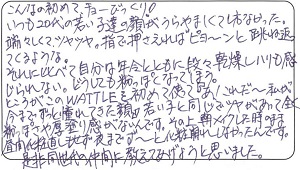 こんなの初めて、チョーびっくり!!
いつも20代の若い子達の顔がうらやましくてしょうがなかった。
端々しくてツヤツヤ。指で押さえればピョ〜ンと跳ね返し
てくるような。
それに比べて自分は年令とともに段々乾燥しハリも感
じられない。どうしても粉っぽくなってしまう。
ところがこのWATTLEを初めて使ってみて「これだ〜」私が
今までずっと憧れてきた顔。若い子と同じでツヤがあって全く
粉っぽさや厚塗り感がないんです。その上朝メイクした時のまま
昼間化粧直しもせず夜までず〜と化粧崩れしなかったんです。
是非同世代の仲間に教えてあげようと思いました。